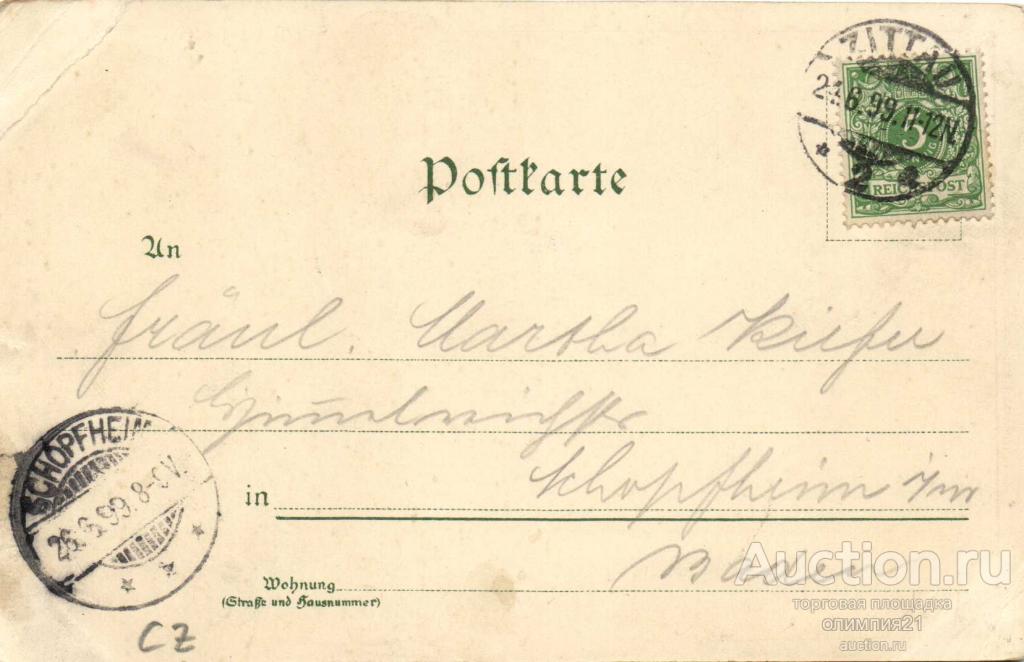 ZITTAU
6.99.11-12N.
2 a
5
REICHSPOST
Postkarte
An
Fräul. Martha Kiefer
in Schopfheim
Baden
SCHOPFHEIM
26.6.99.8-9V.
Wohnung
(Straße und Hausnummer)
CZ
Auction.ru
торговая площадка
олимпия21
auction.ru